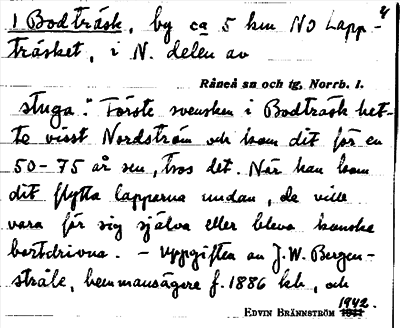 1 Bodträsk, by ca 5 km NO Lapp-
träsket, i N. delen av
Råneå sn och tg, Norrb. l.
stuga." Förste svensken i Bodträsk het-
te visst Nordström och kom dit för en
50-75 år sen, tros det. När han kom
dit flytta lapparna undan, de ville
vara för sig själva eller bleva kanske
bortdrivna. - Uppgiften av J.W. Bergen-
stråle, hemmansägare f. 1886 kh, och
EDVIN BRÄNNSTRÖM 1942.